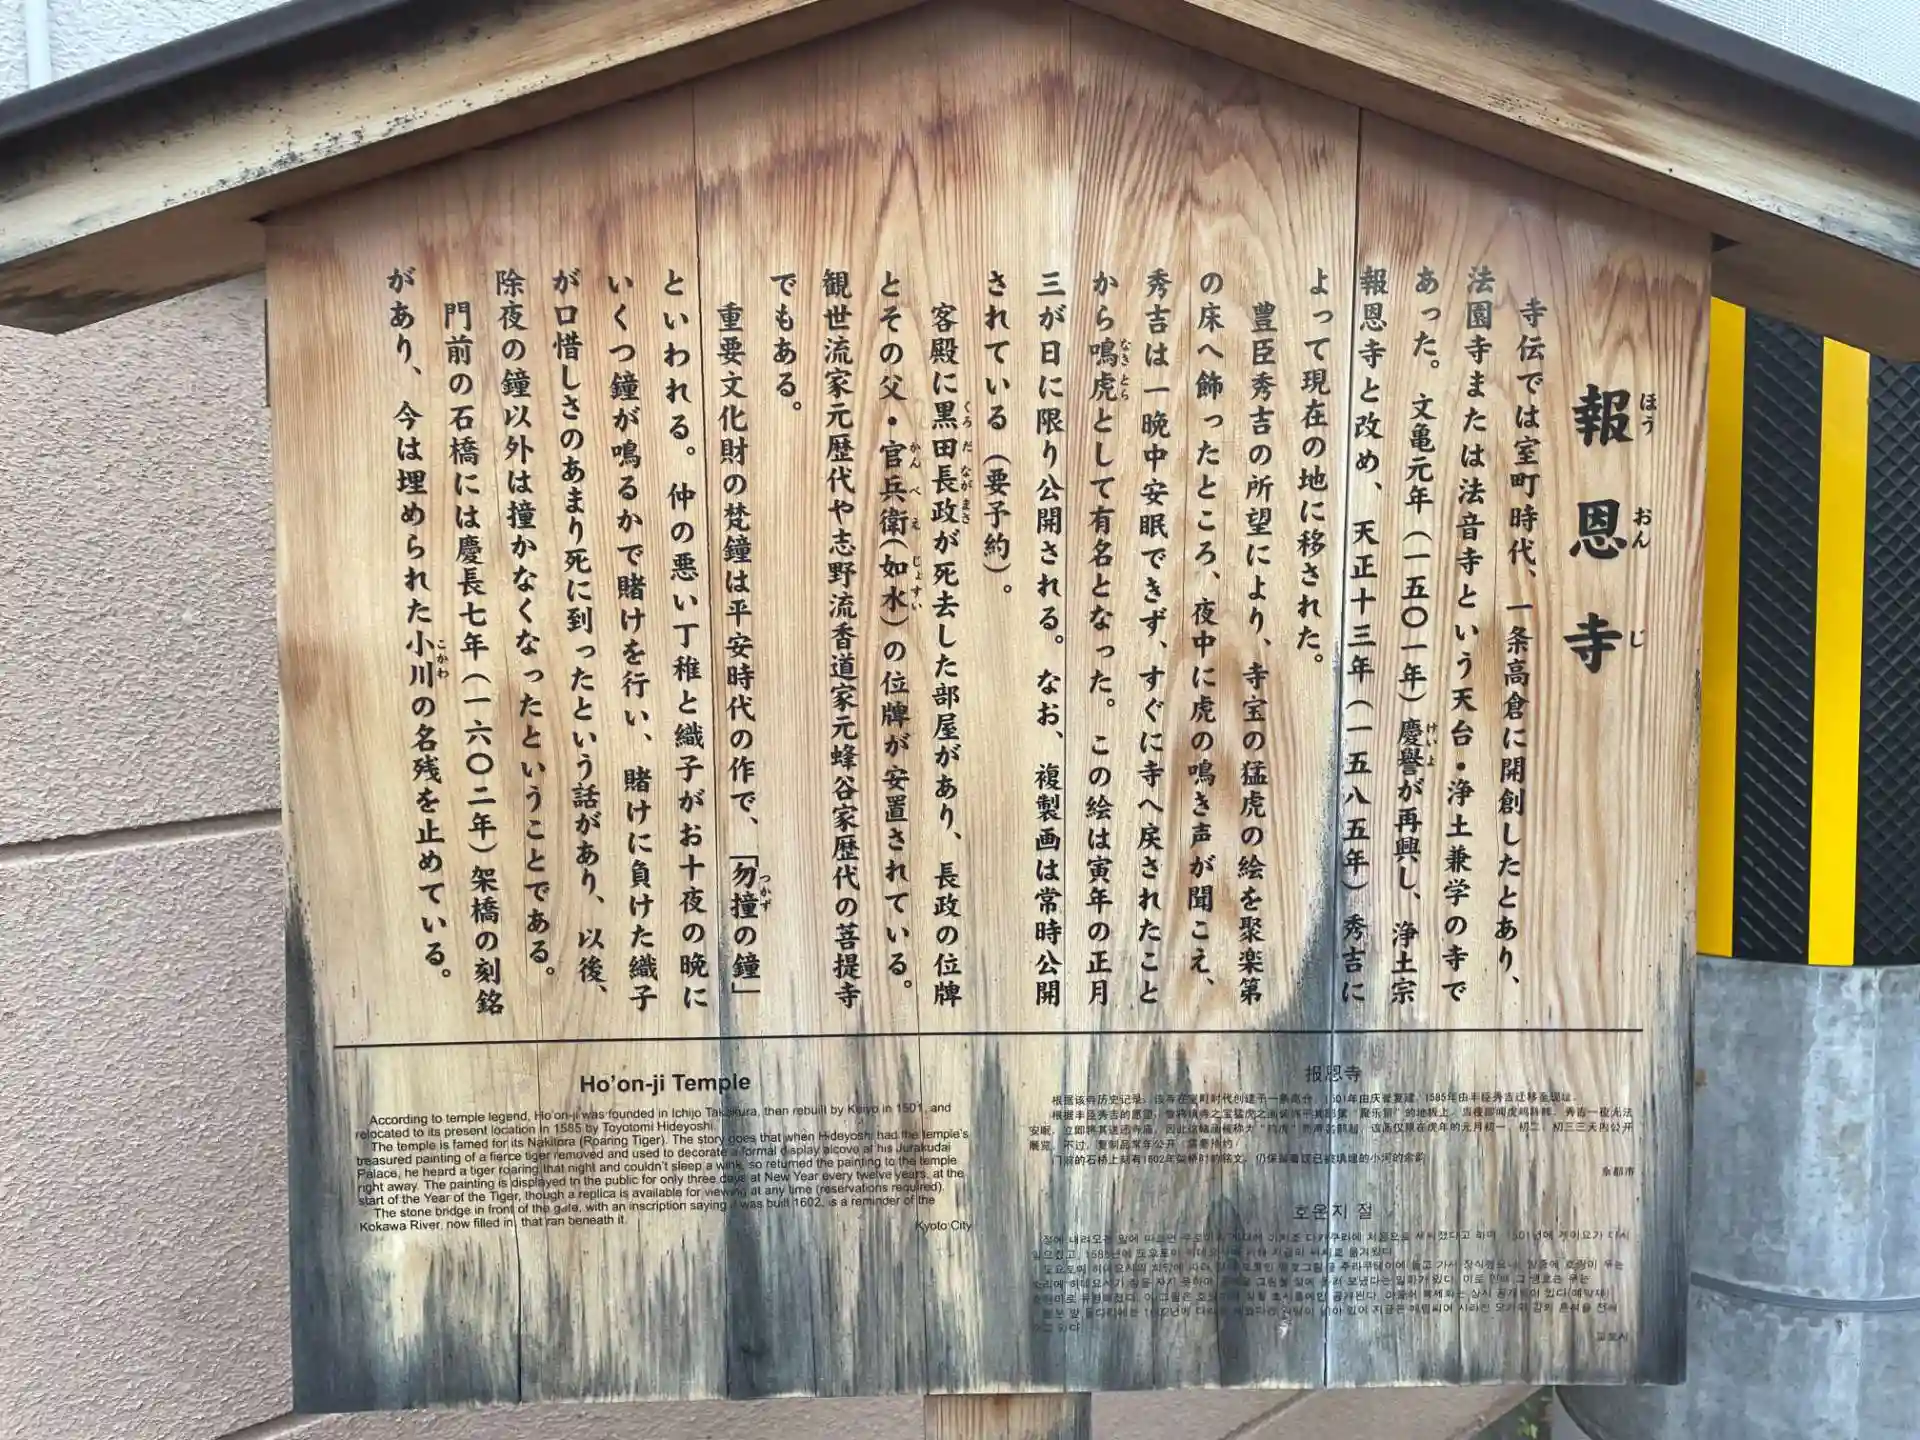 報恩寺
ほう おん じ
寺伝では室町時代、一条高倉に開創したとあり、
法園寺または法音寺という天台・浄土兼学の寺で
あった。文亀元年(一五〇一年)慶誉が再興し、浄土宗
けいよ
報恩寺と改め、天正十三年(一五八五年)秀吉に
よって現在の地に移された。
豊臣秀吉の所望により、寺宝の猛虎の絵を聚楽第
の床へ飾ったところ、夜中に虎の鳴き声が聞こえ、
秀吉は一晩中安眠できず、すぐに寺へ戻されたこと
から鳴虎として有名となった。この絵は寅年の正月
なきとら
三が日に限り公開される。なお、複製画は常時公開
されている(要予約)。
客殿に黒田長政が死去した部屋があり、長政の位牌
くろだながまさ
とその父・官兵衛(如水)の位牌が安置されている。
かんべえ じょすい
観世流家元歴代や志野流香道家元蜂谷家歴代の菩提寺
でもある。
重要文化財の梵鐘は平安時代の作で、「勿撞の鐘」
つかず
といわれる。仲の悪い丁稚と織子がお十夜の晩に
いくつ鐘が鳴るかで賭けを行い、賭けに負けた織子
が口惜しさのあまり死に到ったという話があり、以後、
除夜の鐘以外は撞かなくなったということである。
門前の石橋には慶長七年(一六〇二年)架橋の刻銘
があり、今は埋められた小川の名残を止めている。
こかわ
Ho'on-ji Temple
According to temple legend, Ho'on-ji was founded in Ichijo Takakura, then rebuilt by Keiyo in 1501, and
relocated to its present location in 1585 by Toyotomi Hideyoshi.
The temple is famed for its Nakitora (Roaring Tiger). The story goes that when Hideyoshi had the temple's
treasured painting of a fierce tiger removed and used to decorate a formal display alcove at his Jurakudai
Palace, he heard a tiger roaring that night and couldn't sleep a wink, so returned the painting to the temple
right away. The painting is displayed to the public for only three days at New Year every twelve years, at the
start of the Year of the Tiger, though a replica is available for viewing at any time (reservations required).
The stone bridge in front of the gate, with an inscription saying it was built 1602, is a reminder of the
Kokawa River, now filled in, that ran beneath it.
Kyoto City
报恩寺
根据该寺历史记录,该寺在室町时代创建于一条高仓,1501年由庆誉复建,1585年由丰臣秀吉迁移至现址。
根据丰臣秀吉的愿望,
安眠,立即将其送还寺庙,
展览。不过,复制品常年公开(需要预约)
门前的石桥上刻有1602年架桥时的铭文,仍保留着现已被填埋的小河的余韵
京都市
호온지 절
교토시